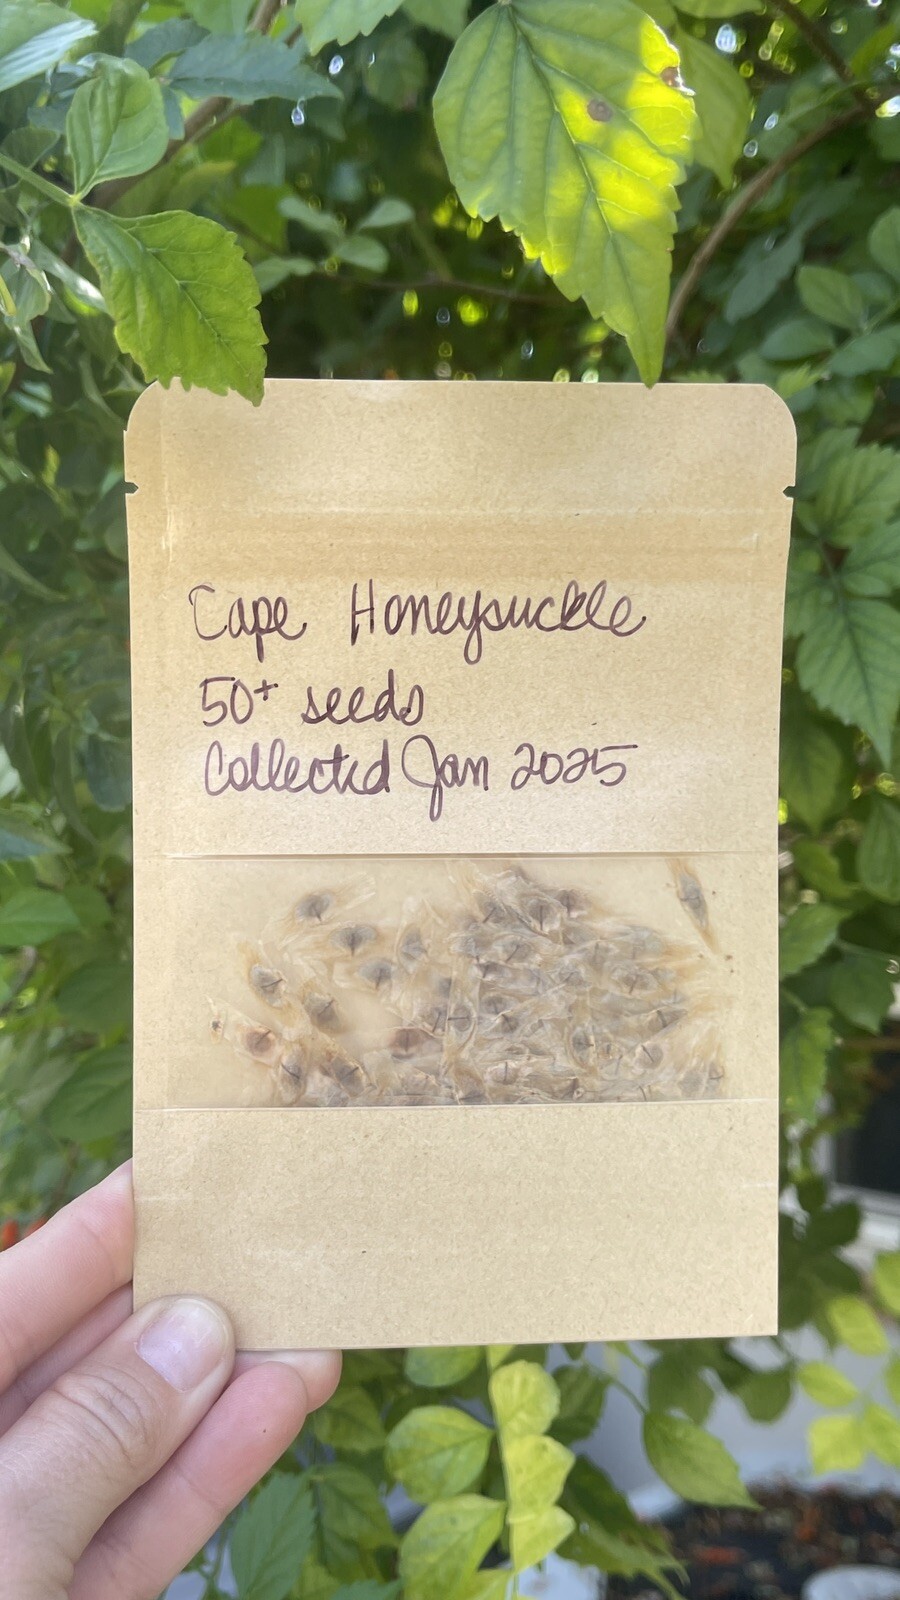 Cape Honeysuckle
50+ seeds
Collected Jan 2025